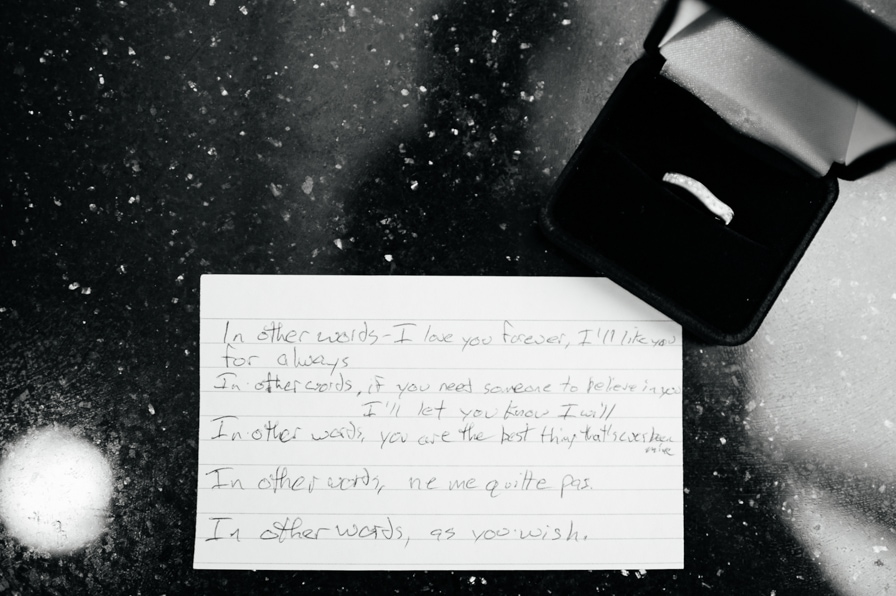 In other words - I love you forever, I'll like you
for always
In other words, if you need someone to believe in you
I'll let you know I will
In other words, you are the best thing that's ever been
mine
In other words, ne me quitte pas.
In other words, as you wish.